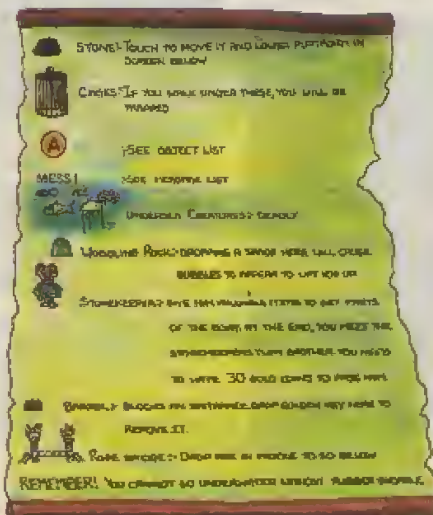 STONE:-TOUCH TO MOVE IT AND LOWER PLATFORM IN
SCREEN BELOW
CAGES:-IF YOU WALK UNDER THESE, YOU WILL BE
TRAPPED
A
:SEE OBJECT LIST
MESS1 :SEE MESSAGE LIST
UNDERSEA CREATURES:- DEADLY
ROCK:- DROPPING A HERE WILL CAUSE
BUBBLES TO APPEAR TO LIFT YOU UP
STOREKEEPER:- GIVE HIM VALUABLE ITEMS TO GET PARTS
OF THE BOAT. AT THE END, YOU MEET THE
STOREKEEPERS TWIN BROTHER. YOU NEED
TO HAVE 30 GOLD COINS TO HIM.
BLOCKS AN ENTRANCE. DROP GOLDEN KEY HERE TO
REMOVE IT.
ROPE BRIDGE:- DROP IN MIDDLE TO GO BELOW
REMEMBER! YOU CANNOT GO UNDERWATER WITHOUT RUBBER SNORKEL